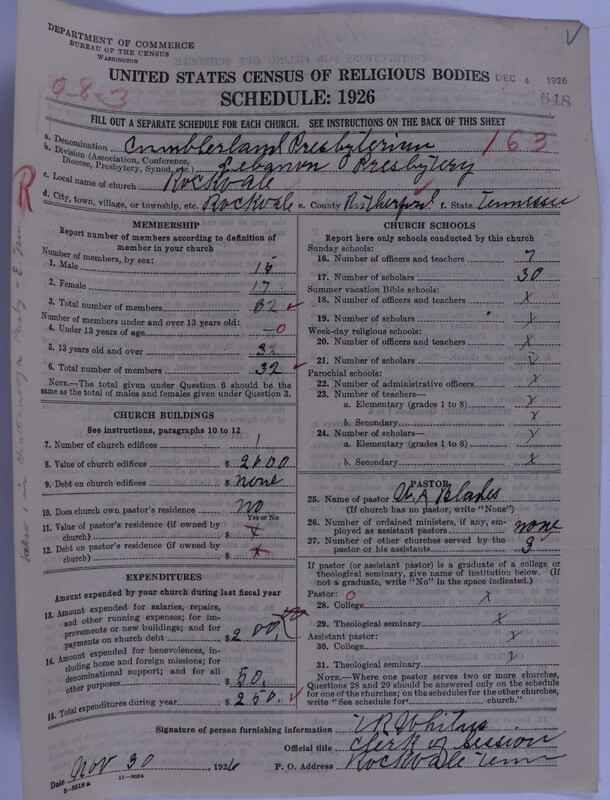 DEPARTMENT OF COMMERCE
BUREAU OF THE CENSUS
WASHINGTON
UNITED STATES CENSUS OF RELIGIOUS BODIES
DEC 4 1926
SCHEDULE: 1926
648
08-3
FILL OUT A SEPARATE SCHEDULE FOR EACH CHURCH. SEE INSTRUCTIONS ON THE BACK OF THIS SHEET
163
a. Denomination Cumberland Presbyterian
b. Division (Association, Conference,
Diocese, Presbytery, Synod, etc.) Lebanon Presbytery
c. Local name of church Rockvale
d. City, town, village, or township, etc. Rockvale e. County Rutherford f. State Tennessee
R
MEMBERSHIP
Report number of members according to definition of
member in your church
Number of members, by sex:
1. Male 15
2. Female 17
3. Total number of members 32
Number of members under and over 13 years old:
4. Under 13 years of age 0
5. 13 years old and over 32
6. Total number of members 32
NOTE.—The total given under Question 6 should be the
same as the total of males and females given under Question 3.
CHURCH BUILDINGS
See instructions, paragraphs 10 to 12
7. Number of church edifices 1
8. Value of church edifices $ 2000
9. Debt on church edifices $ none
10. Does church own pastor's residence no
Yes or No
11. Value of pastor's residence (if owned by
church) $ x
12. Debt on pastor's residence (if owned by
church) $ x
EXPENDITURES
Amount expended by your church during last fiscal year
13. Amount expended for salaries, repairs,
and other running expenses; for im-
provements or new buildings; and for
payments on church debt $ 200.
14. Amount expended for benevolences, in-
cluding home and foreign missions; for
denominational support; and for all
other purposes $ 50.
15. Total expenditures during year $ 250.
CHURCH SCHOOLS
Report here only schools conducted by this church
Sunday schools:
16. Number of officers and teachers 7
17. Number of scholars 30
Summer vacation Bible schools:
18. Number of officers and teachers x
19. Number of scholars x
Week-day religious schools:
20. Number of officers and teachers x
21. Number of scholars x
Parochial schools:
22. Number of administrative officers x
23. Number of teachers—
a. Elementary (grades 1 to 8) x
b. Secondary x
24. Number of scholars—
a. Elementary (grades 1 to 8) x
b. Secondary x
PASTOR
25. Name of pastor Blades
(If church has no pastor, write "None")
26. Number of ordained ministers, if any, em-
ployed as assistant pastors none
27. Number of other churches served by the
pastor or his assistants 3
If pastor (or assistant pastor) is a graduate of a college or
theological seminary, give name of institution below. (If
not a graduate, write "No" in the space indicated.)
Pastor: 0
28. College x
29. Theological seminary x
Assistant pastor:
30. College x
31. Theological seminary x
NOTE.—Where one pastor serves two or more churches,
Questions 28 and 29 should be answered only on the schedule
for one of the churches; on the schedules for the other churches,
write "See schedule for church."
Signature of person furnishing information
Official title Clerk of Session
Date Nov 30, 1926 P. O. Address Rockvale Tenn
8-5518a 11-9054